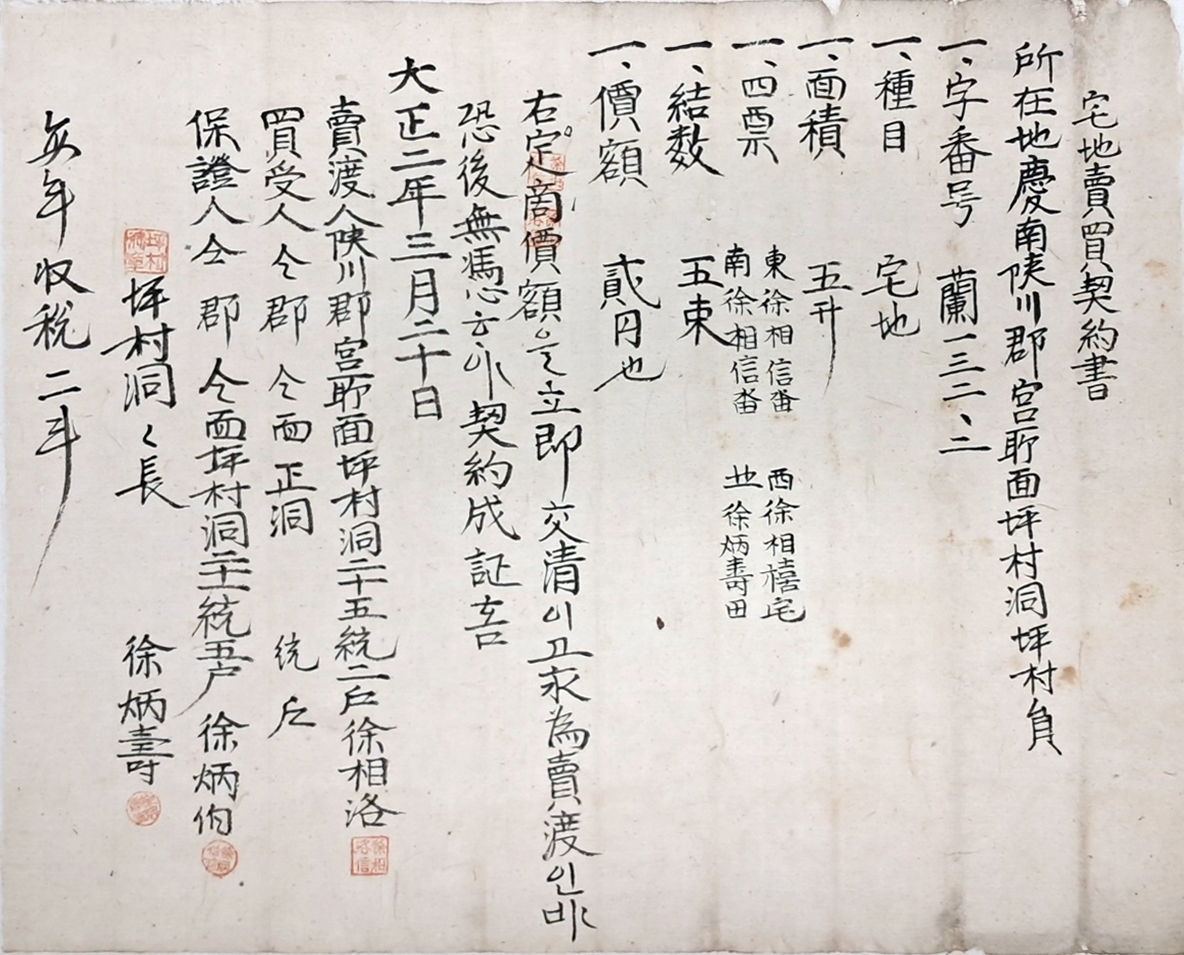 宅地賣買契約書
所在地慶南陜川郡宮所面坪村洞坪村員
一、字番号 蘭一三二、二
一、種目 宅地
一、面積 五升
一、四票 東徐相信畓 西徐相禧宅
南徐相信畓 北徐炳壽田
一、結數 五束
一、價額 貳円也
右定商價額은立即交清이고永為賣渡인바
恐後無憑으야契約成証喜
大正二年三月二十日
賣渡人陜川郡宮所面坪村洞二十五統二戶徐相洛
買受人仝郡仝面正洞 統戶
保證人仝郡仝面坪村洞二十一統五戶徐炳伯
坪村洞〱長 徐炳壽
每年收税二斗